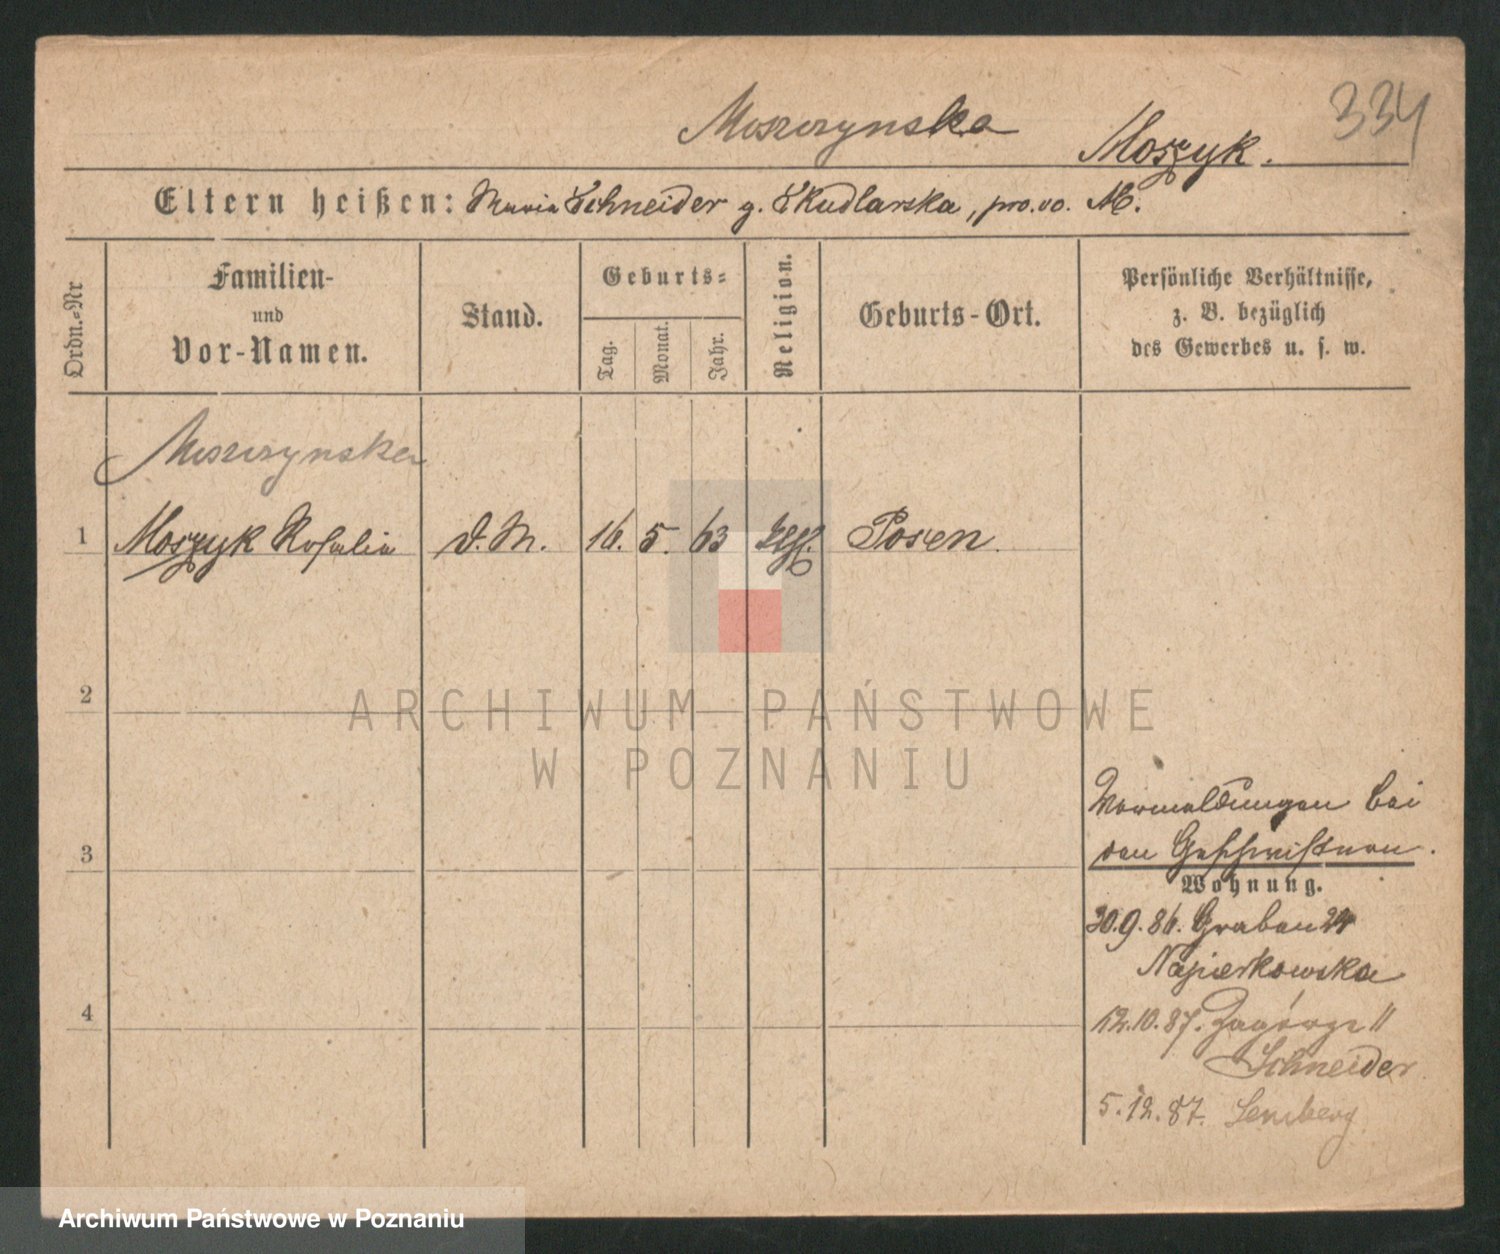 334
Moszczynska
Moszyk.
Eltern heißen: Maria Schneider g. Skudlarska, pro. vo. M.
Ordn.=Nr
Familien-
und
Vor-Namen.
Stand.
Geburts=
Tag.
Monat.
Jahr.
Religion.
Geburts-Ort.
Persönliche Verhältnisse,
z. B. bezüglich
des Gewerbes u. s. w.
Moszczynska
1 Moszyk Rosalie d. M. 16. 5. 63 Posen.
2
ARCHIWUM PAŃSTWOWE
W POZNANIU
3
Vormeldungen bei
den Geschwistern.
Wohnung.
30.9.86. Graben 24
Napierkowska
4
12.10.87. Zagórze 11
Schneider
5.12.87. Lemberg
Archiwum Państwowe w Poznaniu